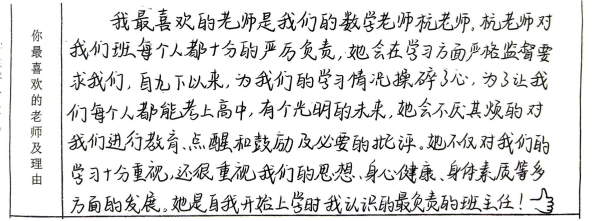 你最喜欢的老师及理由
我最喜欢的老师是我们的数学老师杭老师。杭老师对
我们班每个人都十分的严厉负责，她会在学习方面严格监督要
求我们，自九下以来，为我们的学习情况操碎了心，为了让我
们每个人都能考上高中，有个光明的未来，她会不厌其烦的对
我们进行教育、点醒和鼓励及必要的批评。她不仅对我们的
学习十分重视，还很重视我们的思想、身心健康、身体素质等多
方面的发展。她是自我开始上学时我认识的最负责的班主任！